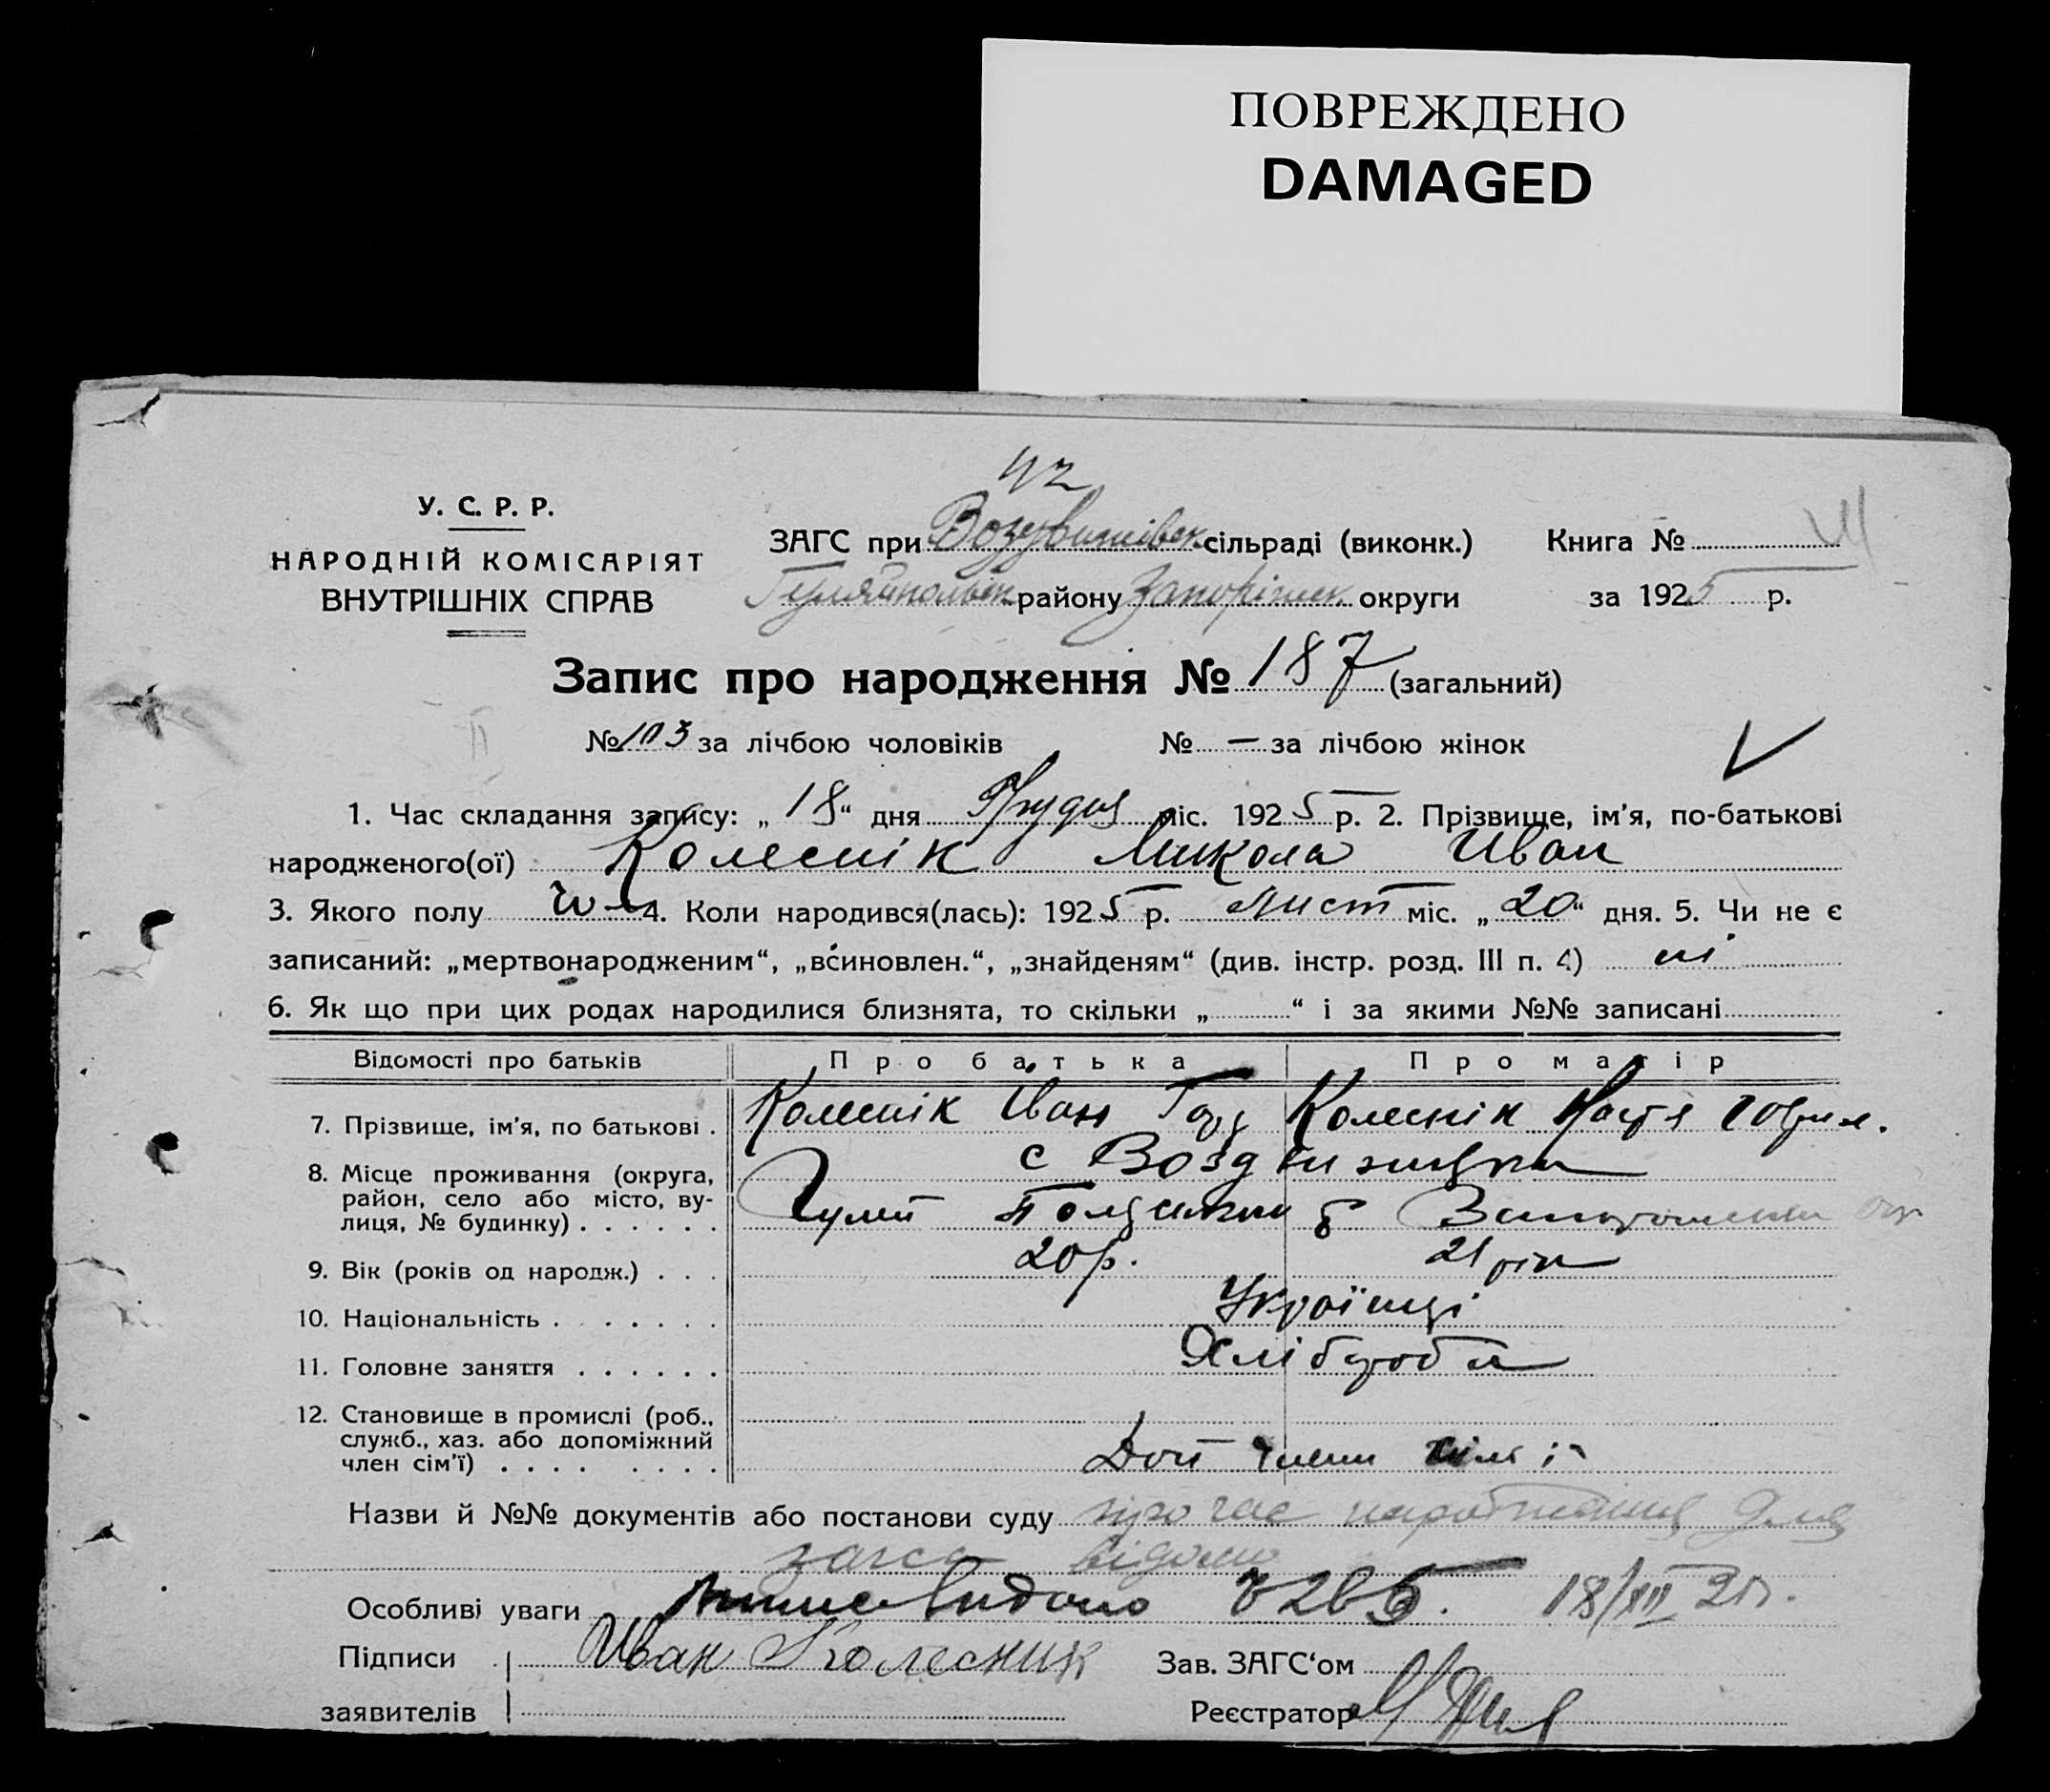 ПОВРЕЖДЕНО
DAMAGED
42
У. С. Р. Р.
НАРОДНІЙ КОМІСАРІЯТ
ВНУТРІШНІХ СПРАВ
ЗАГС при Воздвижівськ сільраді (виконк.) Книга №
Гуляйпольськ району Запоріжськ. округи за 1925 р.
Запис про народження № 187 (загальний)
№ 103 за лічбою чоловіків № — за лічбою жінок
II
1. Час складання запису: „18“ дня Грудня міс. 1925 р. 2. Прізвище, ім'я, по-батькові
народженого(ої) Колеснік Микола Иван
3. Якого полу ч 4. Коли народився(лась): 1925 р. Лист міс. „20“ дня. 5. Чи не є
записаний: „мертвонародженим“, „всиновлен.“, „знайденям“ (див. інстр. розд. III п. 4) ні
6. Як що при цих родах народилися близнята, то скільки „ “ і за якими №№ записані
Відомості про батьків Про батька Про матір
7. Прізвище, ім'я, по батькові . Колеснік Иван Колеснік Настя
8. Місце проживання (округа, с Воздвижижка
район, село або місто, ву-
лиця, № будинку) . . . . . . Гуляй
9. Вік (років од народж.) . . . 20 р. 21 рік
10. Національність . . . . . . . Українці
11. Головне заняття . . . . . . Хлібороби
12. Становище в промислі (роб.,
служб., хаз. або допоміжний
член сім'ї) . . . . . . . . Доп члени сімї
Назви й №№ документів або постанови суду про час народження для
загса відомо
Особливі уваги видано 18/XII 25 р.
Підписи Иван Колесник Зав. ЗАГС‘ом
заявителів Реєстратор